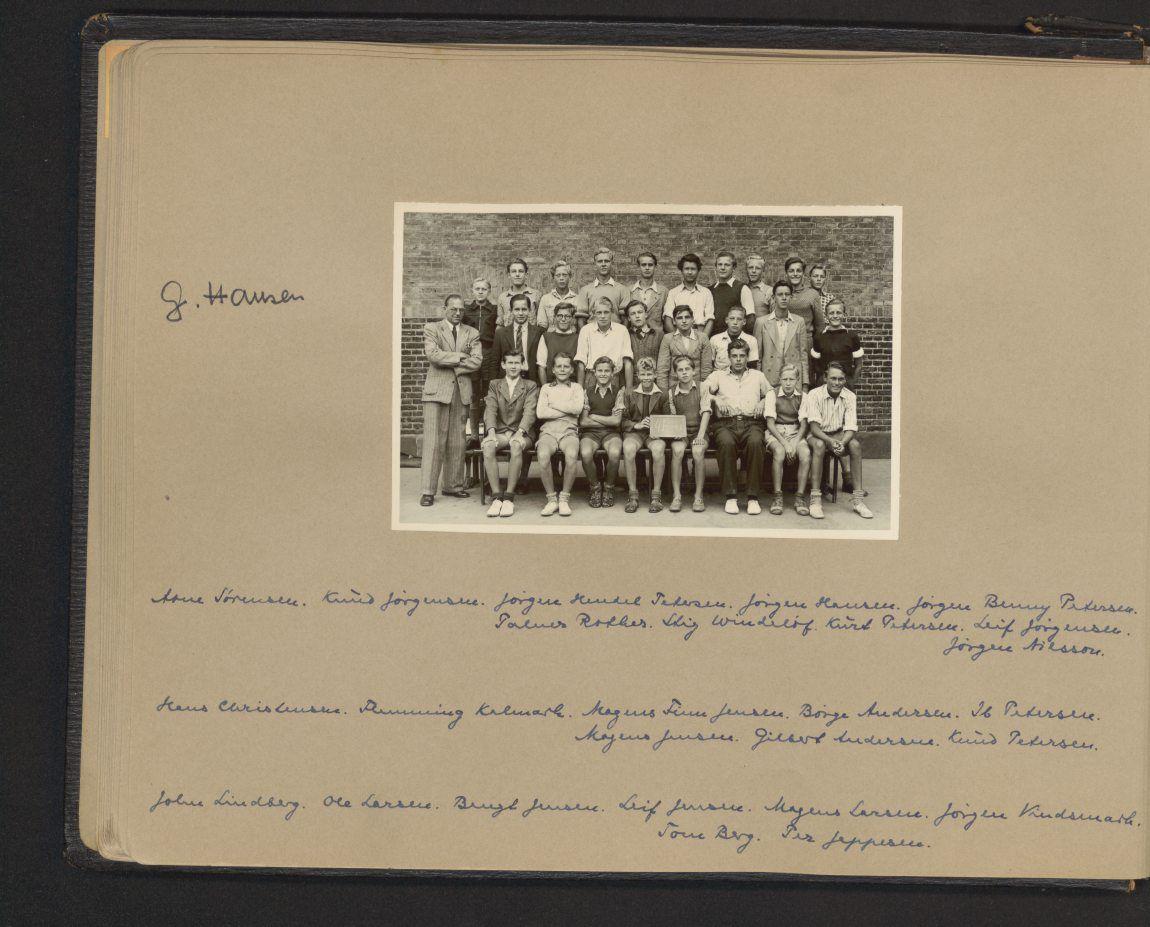 G. Hansen
Arne Sørensen. Knud Jørgensen. Jørgen Hendel Petersen. Jørgen Hansen. Jørgen Benny Petersen.
Palner Rother. Stig Windeløf. Kurt Petersen. Leif Jørgensen.
Jørgen Nilsson.
Hans Christensen. Flemming Kalmark. Mogens Finn Jensen. Børge Andersen. Ib Petersen.
Mogens Jensen. Gilbert Andersen. Knud Petersen.
John Lindberg. Ole Larsen. Bengt Jensen. Leif Jensen. Mogens Larsen. Jørgen Vindsmark.
Tom Berg. Per Jeppesen.